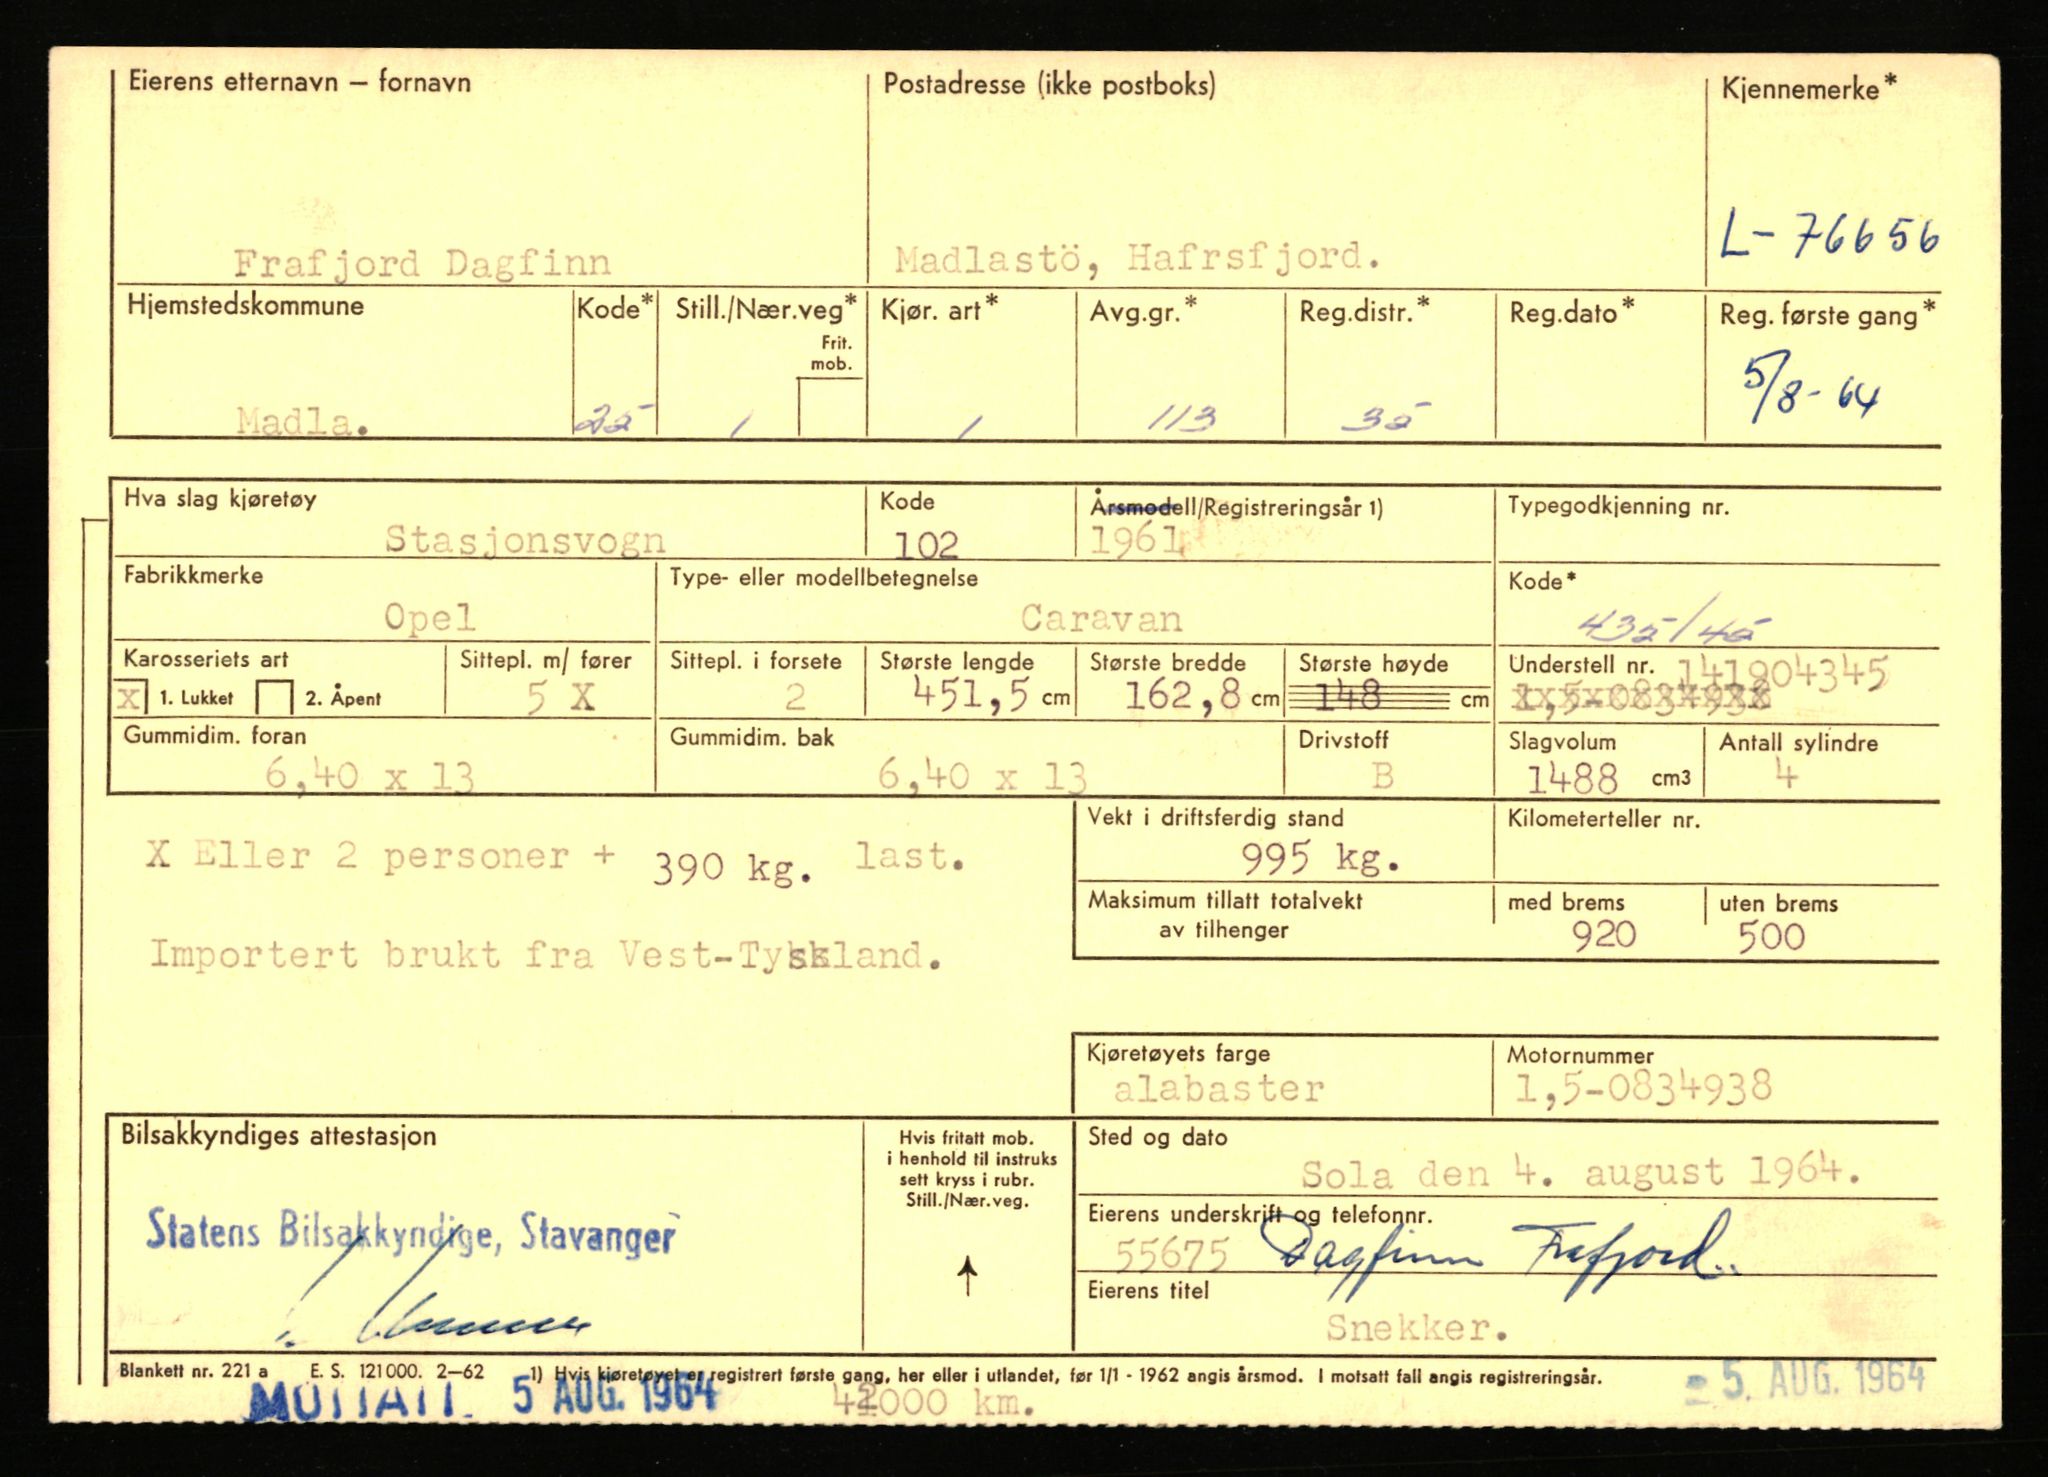 Eierens etternavn – fornavn Postadresse (ikke postboks) Kjennemerke*
L-76656
Frafjord Dagfinn Madlastö, Hafrsfjord.
Hjemstedskommune Kode* Still./Nær.veg* Kjør. art* Avg.gr.* Reg.distr.* Reg.dato* Reg. første gang*
Frit.
mob.
5/8-64
Madla. 25 1 1 113 35
Hva slag kjøretøy Kode Årsmodell/Registreringsår 1) Typegodkjenning nr.
Stasjonsvogn 102 1961
Fabrikkmerke Type- eller modellbetegnelse Kode*
Opel Caravan 435/45
Karosseriets art Sittepl. m/ fører Sittepl. i forsete Største lengde Største bredde Største høyde Understell nr. 141904345
x 1. Lukket 2. Åpent 5 X 2 451,5 cm 162,8 cm 148 cm 1,5-0834938
Gummidim. foran Gummidim. bak Drivstoff Slagvolum Antall sylindre
6,40 x 13 6,40 x 13 B 1488 cm3 4
Vekt i driftsferdig stand Kilometerteller nr.
X Eller 2 personer + 390 kg. last. 995 kg.
Maksimum tillatt totalvekt med brems uten brems
av tilhenger 920 500
Importert brukt fra Vest-Tyskland.
Kjøretøyets farge Motornummer
alabaster 1,5-0834938
Bilsakkyndiges attestasjon Hvis fritatt mob.
i henhold til instruks
sett kryss i rubr.
Still./Nær.veg.
Sted og dato
Sola den 4. august 1964.
Statens Bilsakkyndige, Stavanger
Eierens underskrift og telefonnr.
55675 Dagfinn Frafjord.
Eierens titel
Snekker.
Blankett nr. 221 a E. S. 121000. 2–62 1) Hvis kjøretøyet er registrert første gang, her eller i utlandet, før 1/1 - 1962 angis årsmod. I motsatt fall angis registreringsår.
MOTTATT 5 AUG. 1964 42000 km. - 5. AUG. 1964